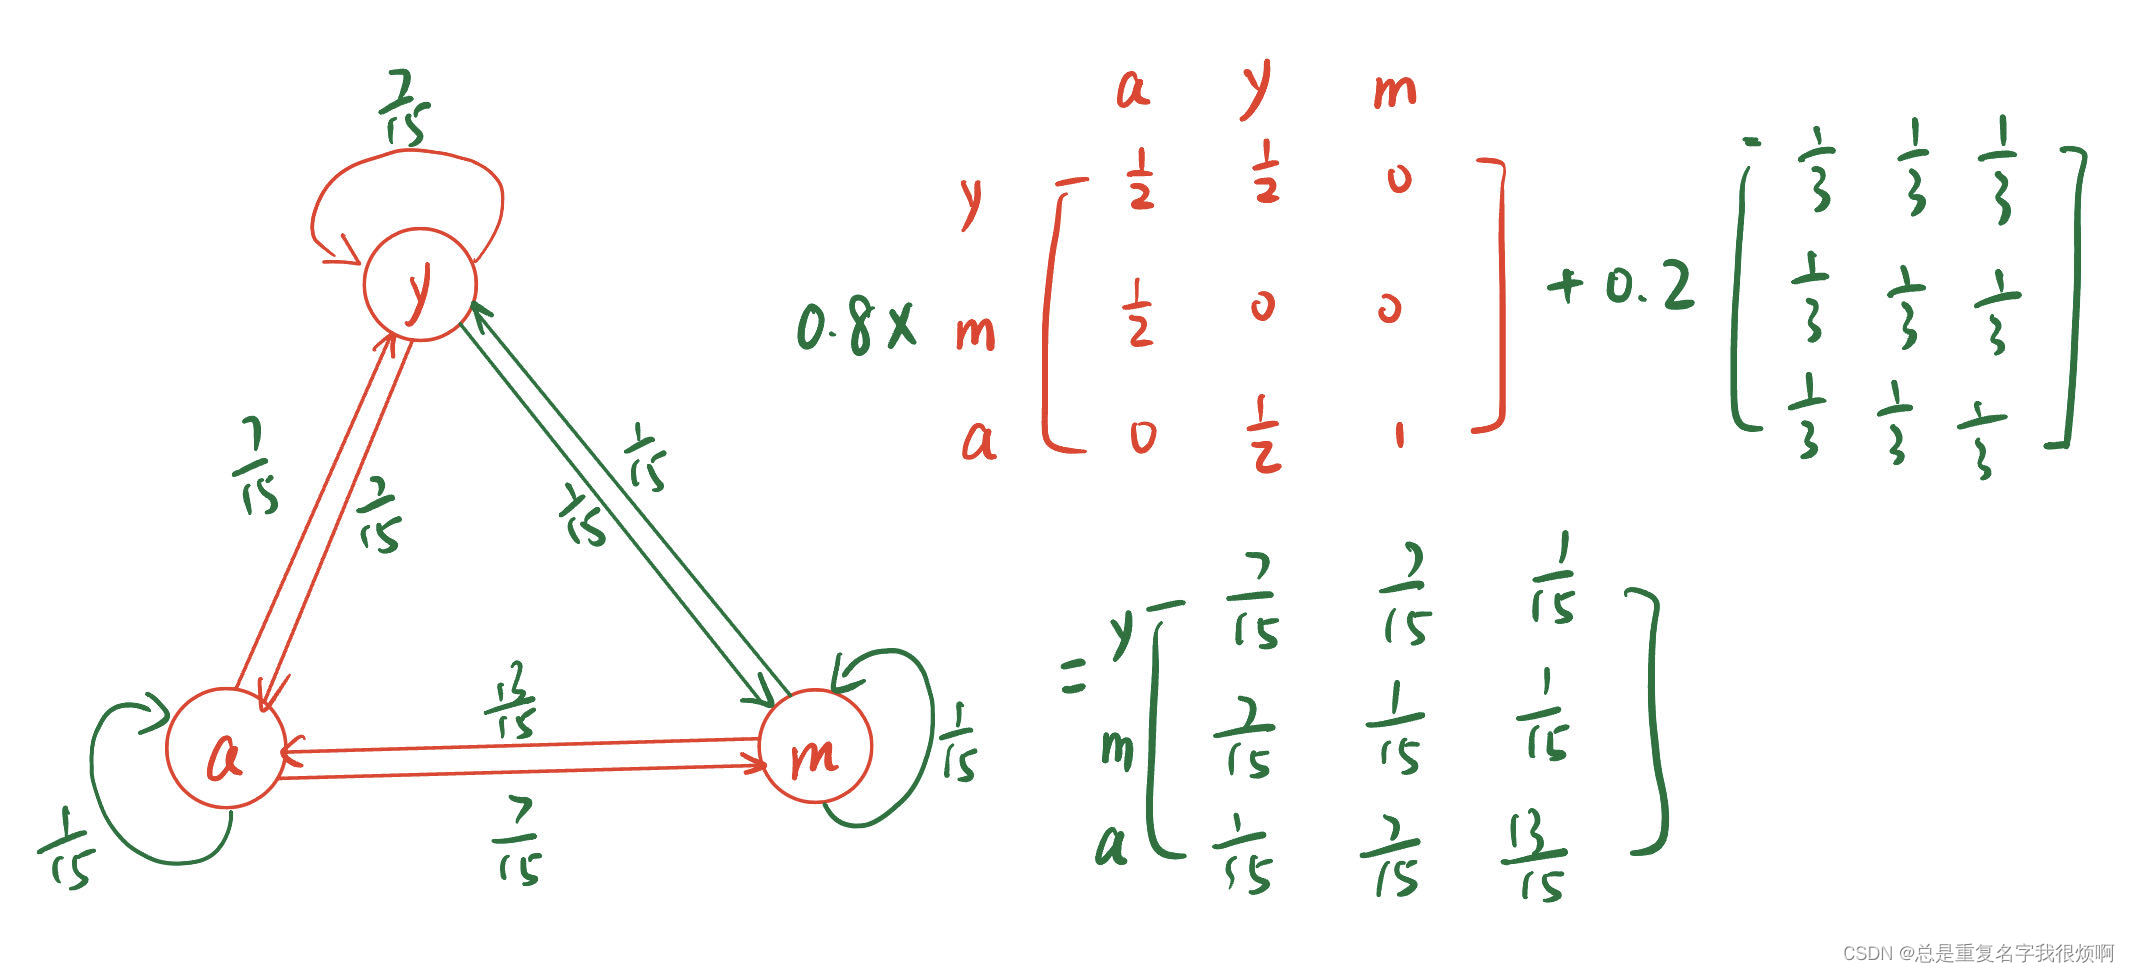 7/15
y
7/15
7/15
1/15
1/15
a
m
13/15
7/15
1/15
1/15
a y m
0.8 x
y 1/2 1/2 0
m 1/2 0 0
a 0 1/2 1
+ 0.2
1/3 1/3 1/3
1/3 1/3 1/3
1/3 1/3 1/3
=
y 7/15 7/15 1/15
m 7/15 1/15 1/15
a 1/15 7/15 13/15
CSDN @总是重复名字我很烦啊